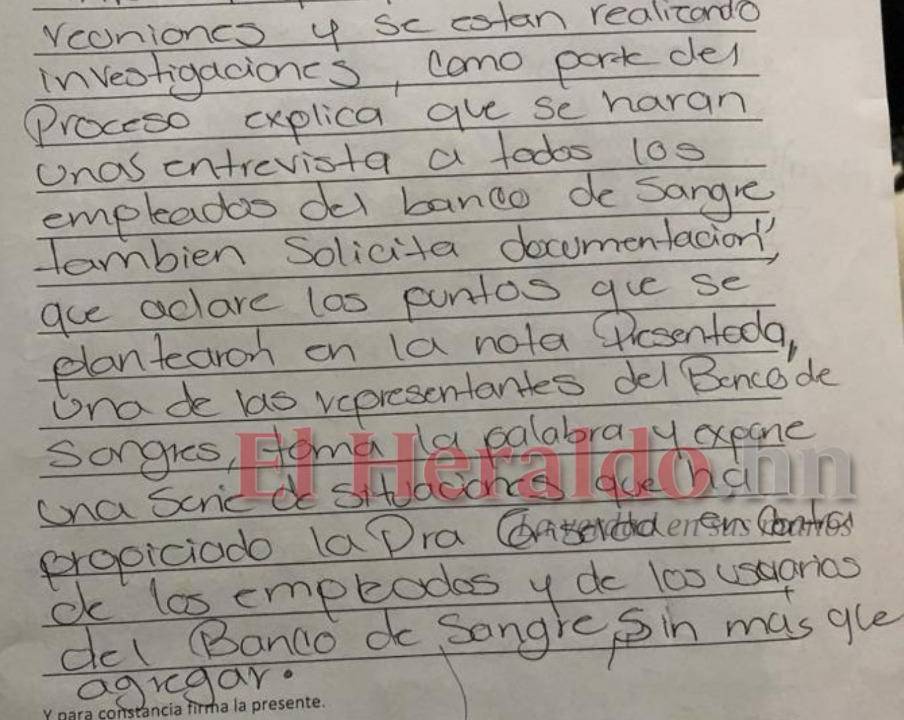 reuniones y se estan realizando
investigaciones, como parte del
Proceso explica que se haran
unas entrevista a todos los
empleados del banco de Sangre
tambien Solicita documentacion,
que aclare los puntos que se
plantearon en la nota Presentada,
una de las representantes del Banco de
Sangres, toma la palabra y expone
El Heraldo.hn
una Serie de situaciones que ha
propiciado la Dra en contra
de los empleados y de los usuarios
del Banco de Sangre, Sin mas que
agregar.
Y para constancia firma la presente.